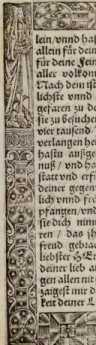 lein/vnnd hab
allein für dein
für deine Fein
aller volkom
Nach dem ist
lichste vnnd
gefaren zu de
sie zu besuchen
vier tausend
verlangen he
hastu außge
nuß / vnd ha
statt vnd erfi
deiner gegen
lich vnnd fre
pfangen/vnd
sie dich nim
ren / das ih
freud gebrac
liebster HEr
deiner lieb an
gen allen mit
zaigist mir d
keit deiner L